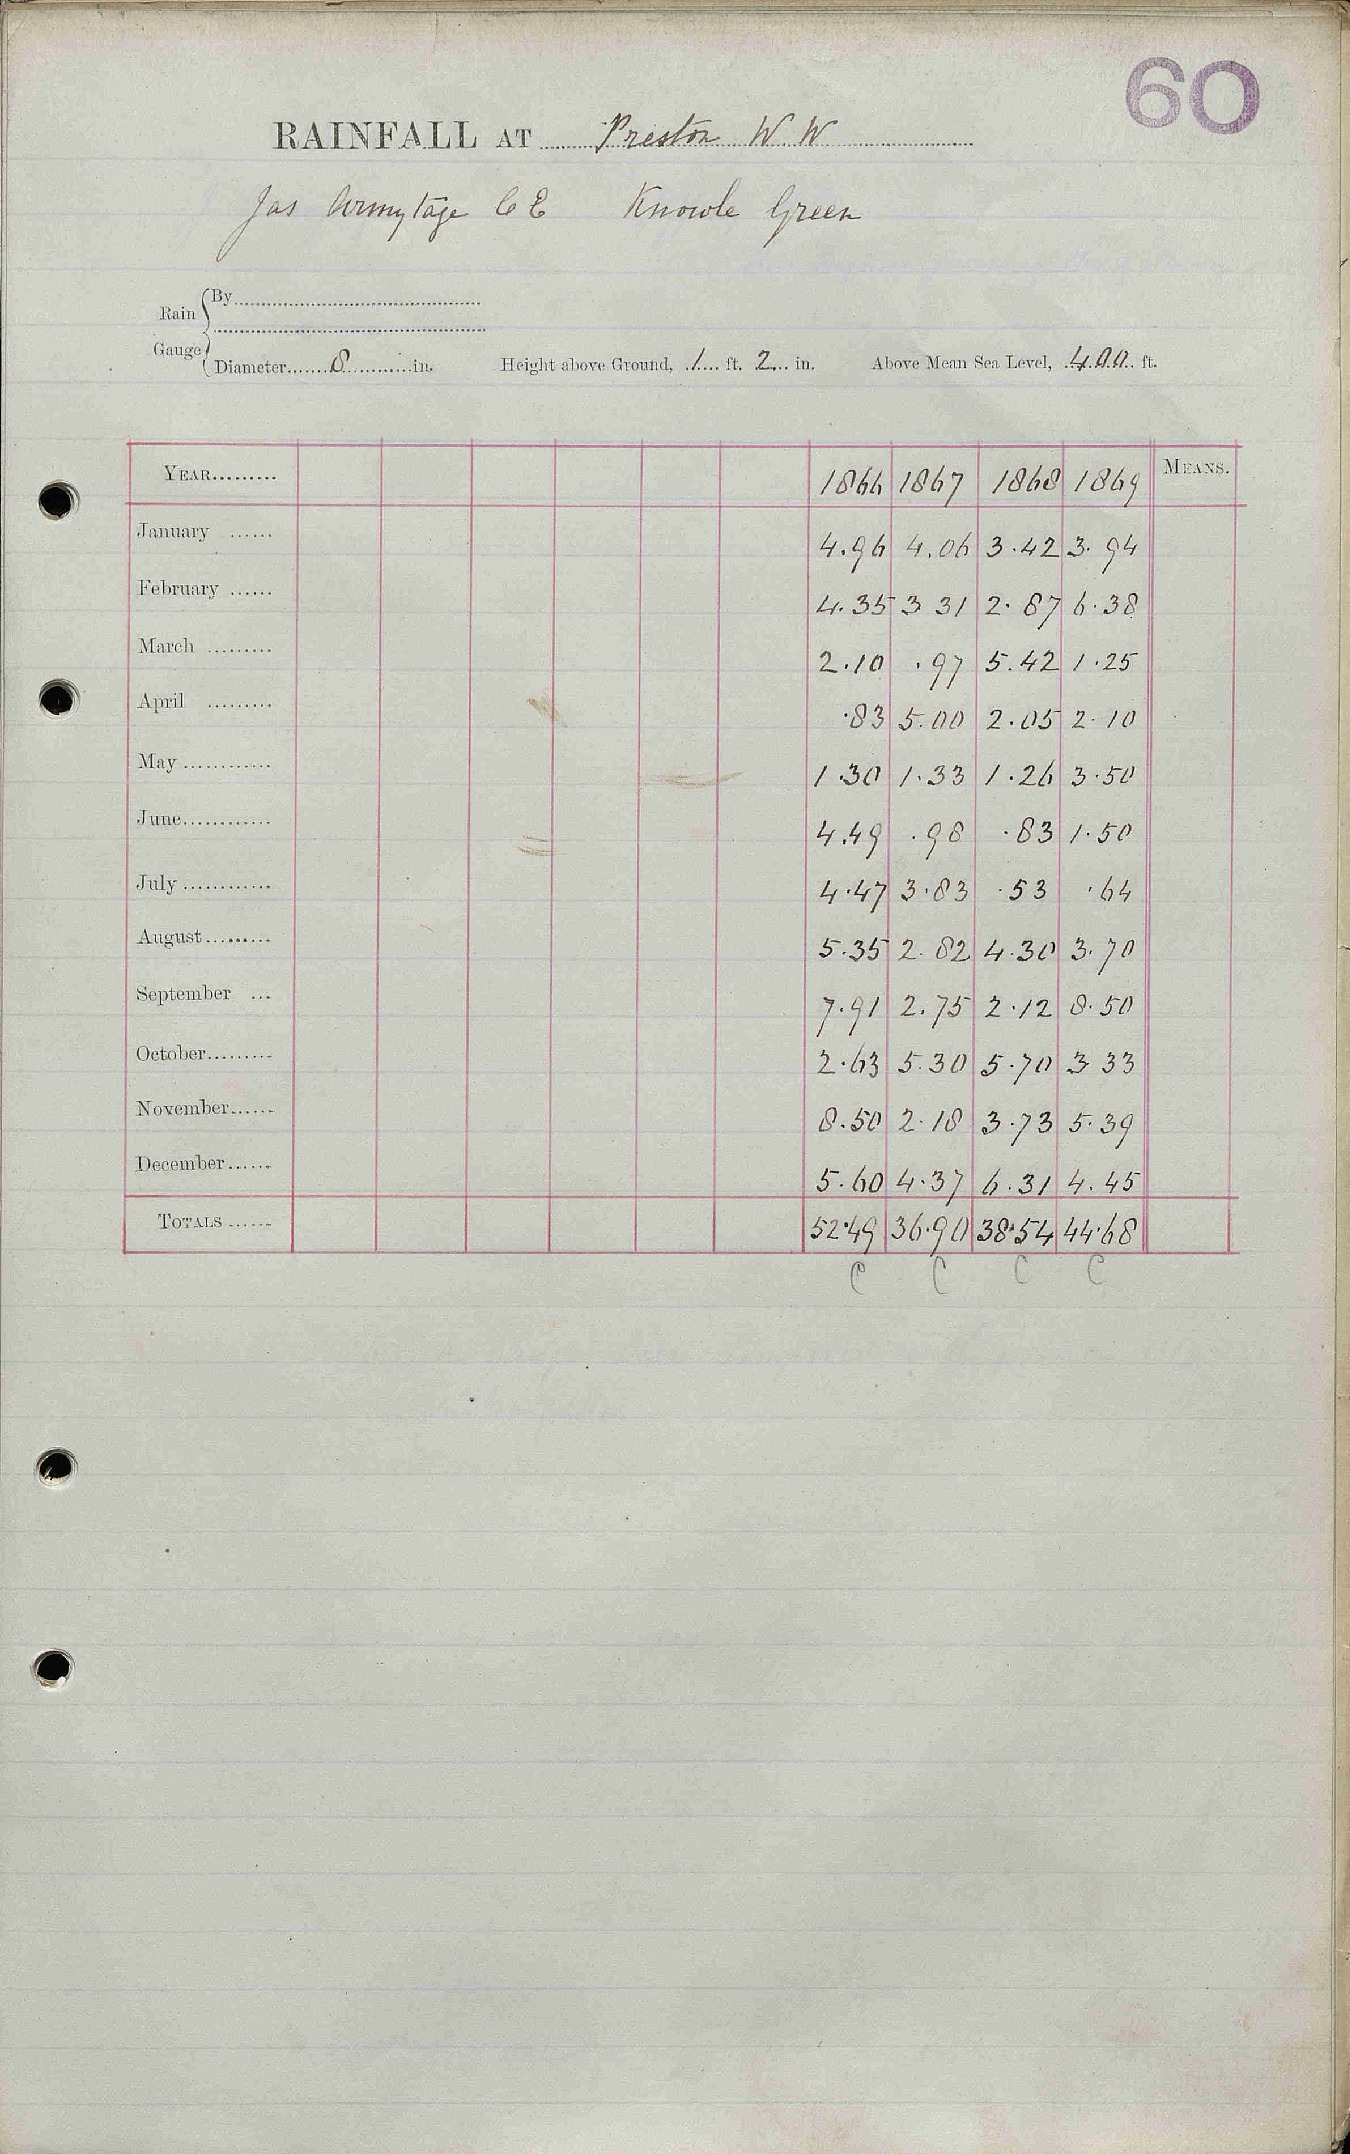 60
RAINFALL AT Preston W W
Jas Armytage C E Knowle Green
Rain Gauge
By
Diameter 8 in. Height above Ground, 1 ft. 2 in. Above Mean Sea Level, 400 ft.
YEAR 1866 1867 1868 1869 MEANS.
January 4.96 4.06 3.42 3.94
February 4.35 3 31 2.87 6.38
March 2.10 .97 5.42 1.25
April .83 5.00 2.05 2.10
May 1.30 1.33 1.26 3.50
June 4.49 .98 .83 1.50
July 4.47 3.83 .53 .64
August 5.35 2.82 4.30 3.70
September 7.91 2.75 2.12 8.50
October 2.63 5.30 5.70 3 33
November 8.50 2.18 3.73 5.39
December 5.60 4.37 6.31 4.45
TOTALS 52.49 36.90 38.54 44.68
C C C C